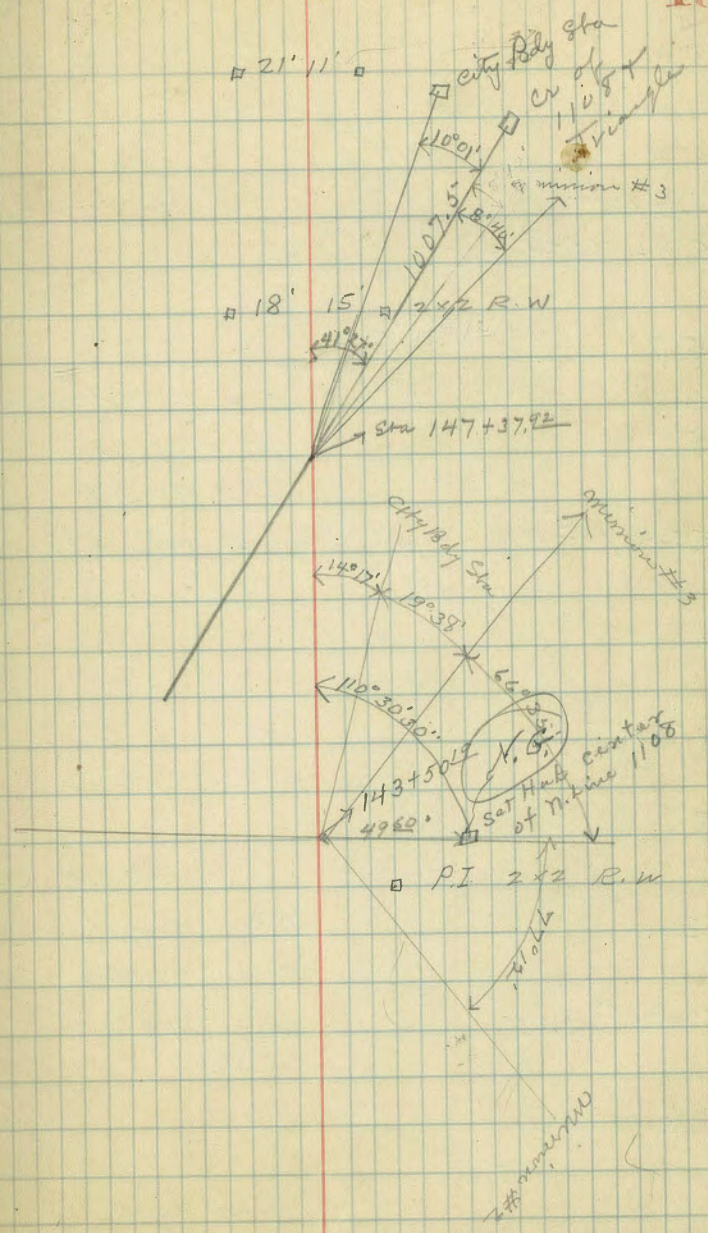 21' 11'
City Bdy Sta
Cr of
1108 &
Triangle
10°01'
mission #3
1007.5'
8°
18' 15' 2x2 R.W
41°27'
Sta 147+37.92
City Bdy Sta
Mission #3
14°17'
19°38'
66°35'
110°30'30"
143+50
49
Set Hub center
of N. Line 1108
P.I 2x2 R.W
77°19'
Mission #2